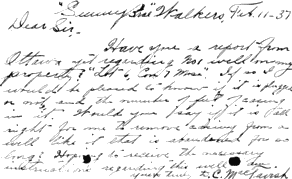 "Sunny Brae" Walkers, Feb. 11-37
Dear Sir.
Have you a report from
Ottawa yet regarding No 1 well on my
property? "Lot 6, Con 7 Mosa" If so I
would be pleased to know if it is plugged
or not and the number of feet of casing
in it. Would you say if it is all
right for me to remove casing from a
well like it that is abandoned for so
long? Hoping to receive the necessary
instructions regarding this well I am
yours truly, C. McTavish